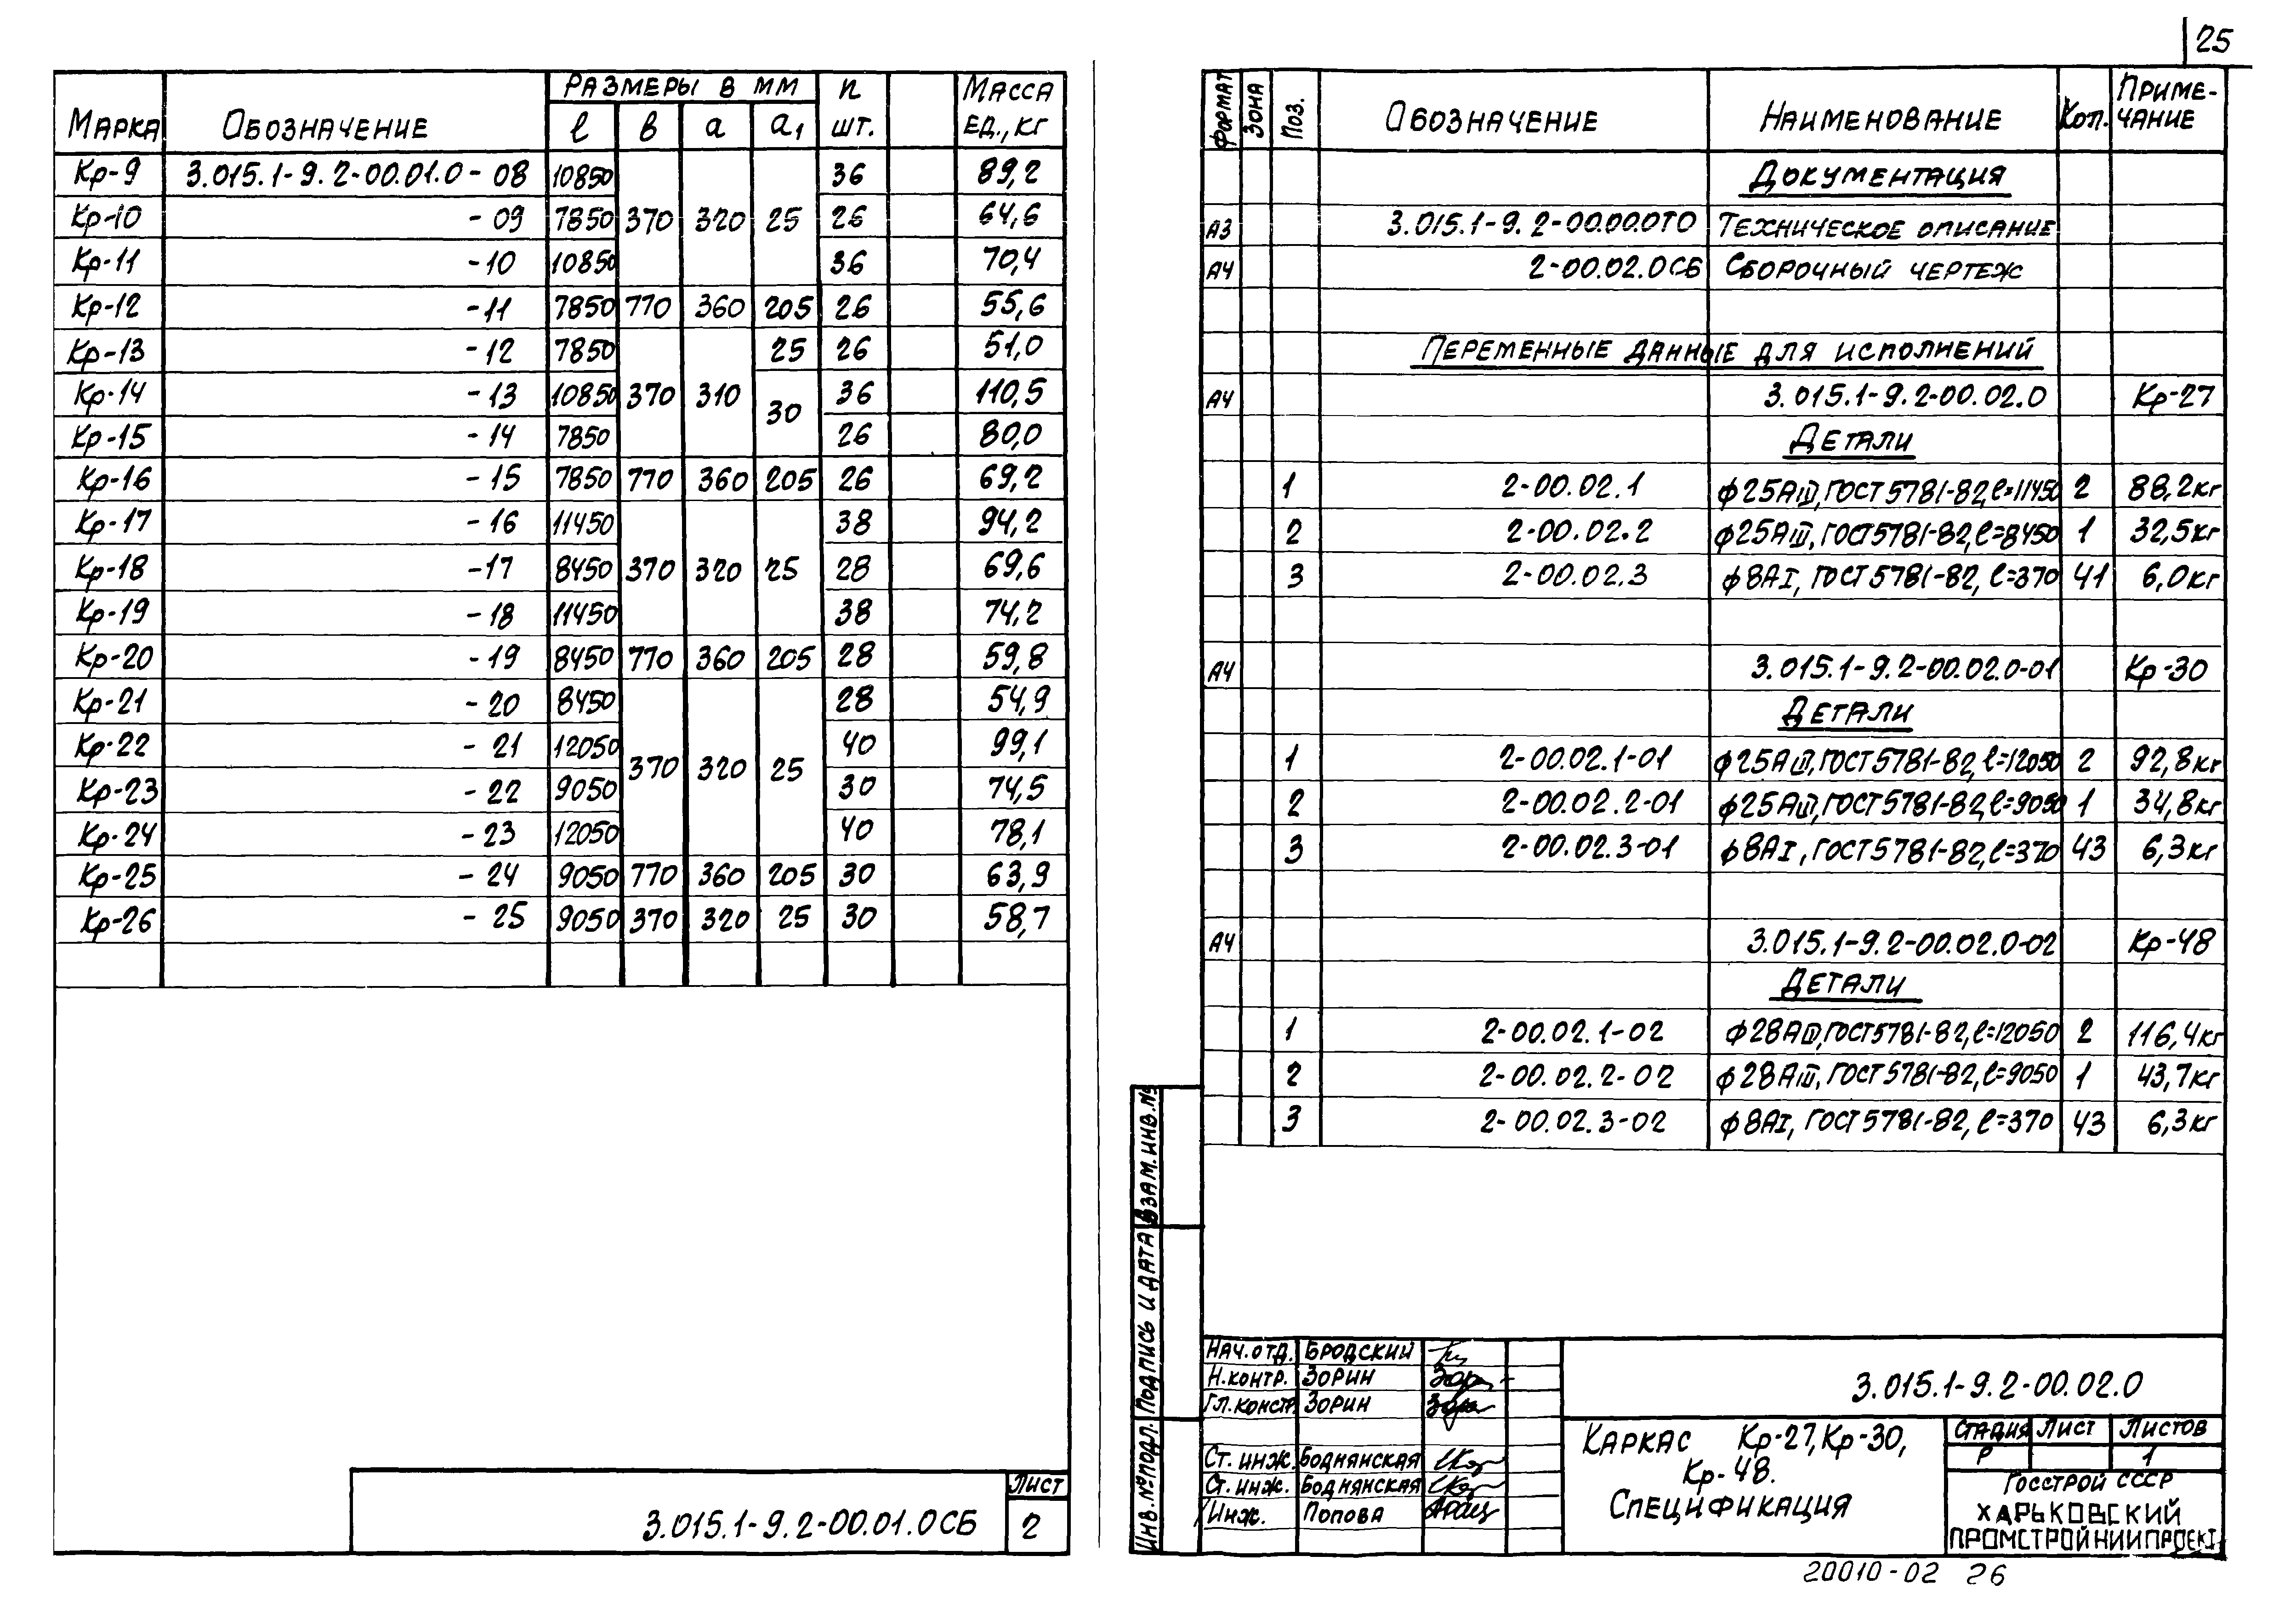 25
МАРКА ОБОЗНАЧЕНИЕ РАЗМЕРЫ В ММ n шт. МАССА ЕД., КГ
l в a a1
Кр-9 3.015.1-9.2-00.01.0-08 10850 36 89,2
Кр-10 -09 7850 370 320 25 26 64,6
Кр-11 -10 10850 36 70,4
Кр-12 -11 7850 770 360 205 26 55,6
Кр-13 -12 7850 25 26 51,0
Кр-14 -13 10850 370 310 30 36 110,5
Кр-15 -14 7850 26 80,0
Кр-16 -15 7850 770 360 205 26 69,2
Кр-17 -16 11450 38 94,2
Кр-18 -17 8450 370 320 25 28 69,6
Кр-19 -18 11450 38 74,2
Кр-20 -19 8450 770 360 205 28 59,8
Кр-21 -20 8450 28 54,9
Кр-22 -21 12050 370 320 25 40 99,1
Кр-23 -22 9050 30 74,5
Кр-24 -23 12050 40 78,1
Кр-25 -24 9050 770 360 205 30 63,9
Кр-26 -25 9050 370 320 25 30 58,7
3.015.1-9.2-00.01.0СБ
ЛИСТ
2
ФОРМАТ ЗОНА ПОЗ. ОБОЗНАЧЕНИЕ НАИМЕНОВАНИЕ КОЛ. ПРИМЕ-
ЧАНИЕ
ДОКУМЕНТАЦИЯ
А3 3.015.1-9.2-00.00.0ТО ТЕХНИЧЕСКОЕ ОПИСАНИЕ
А4 2-00.02.0СБ СБОРОЧНЫЙ ЧЕРТЕЖ
ПЕРЕМЕННЫЕ ДАННЫЕ ДЛЯ ИСПОЛНЕНИЙ
А4 3.015.1-9.2-00.02.0 Кр-27
ДЕТАЛИ
1 2-00.02.1 ф25АIII, ГОСТ 5781-82, l=11450 2 88,2кг
2 2-00.02.2 ф25АIII, ГОСТ 5781-82, l=8450 1 32,5кг
3 2-00.02.3 ф8АI, ГОСТ 5781-82, l=370 41 6,0кг
А4 3.015.1-9.2-00.02.0-01 Кр-30
ДЕТАЛИ
1 2-00.02.1-01 ф25АIII, ГОСТ 5781-82, l=12050 2 92,8кг
2 2-00.02.2-01 ф25АIII, ГОСТ 5781-82, l=9050 1 34,8кг
3 2-00.02.3-01 ф8АI, ГОСТ 5781-82, l=370 43 6,3кг
А4 3.015.1-9.2-00.02.0-02 Кр-48
ДЕТАЛИ
1 2-00.02.1-02 ф28АIII, ГОСТ 5781-82, l=12050 2 116,4кг
2 2-00.02.2-02 ф28АIII, ГОСТ 5781-82, l=9050 1 43,7кг
3 2-00.02.3-02 ф8АI, ГОСТ 5781-82, l=370 43 6,3кг
ВЗАМ. ИНВ. №
ПОДПИСЬ И ДАТА
ИНВ. № ПОДЛ.
НАЧ. ОТД. БРОДСКИЙ
Н. КОНТР. ЗОРИН
ГЛ. КОНСТР. ЗОРИН
СТ. ИНЖ. БОДНЯНСКАЯ
СТ. ИНЖ. БОДНЯНСКАЯ
ИНЖ. ПОПОВА
3.015.1-9.2-00.02.0
КАРКАС Кр-27, Кр-30,
Кр-48.
СПЕЦИФИКАЦИЯ
СТАДИЯ ЛИСТ ЛИСТОВ
Р 1
ГОССТРОЙ СССР
ХАРЬКОВСКИЙ
ПРОМСТРОЙНИИПРОЕКТ
20010-02 26